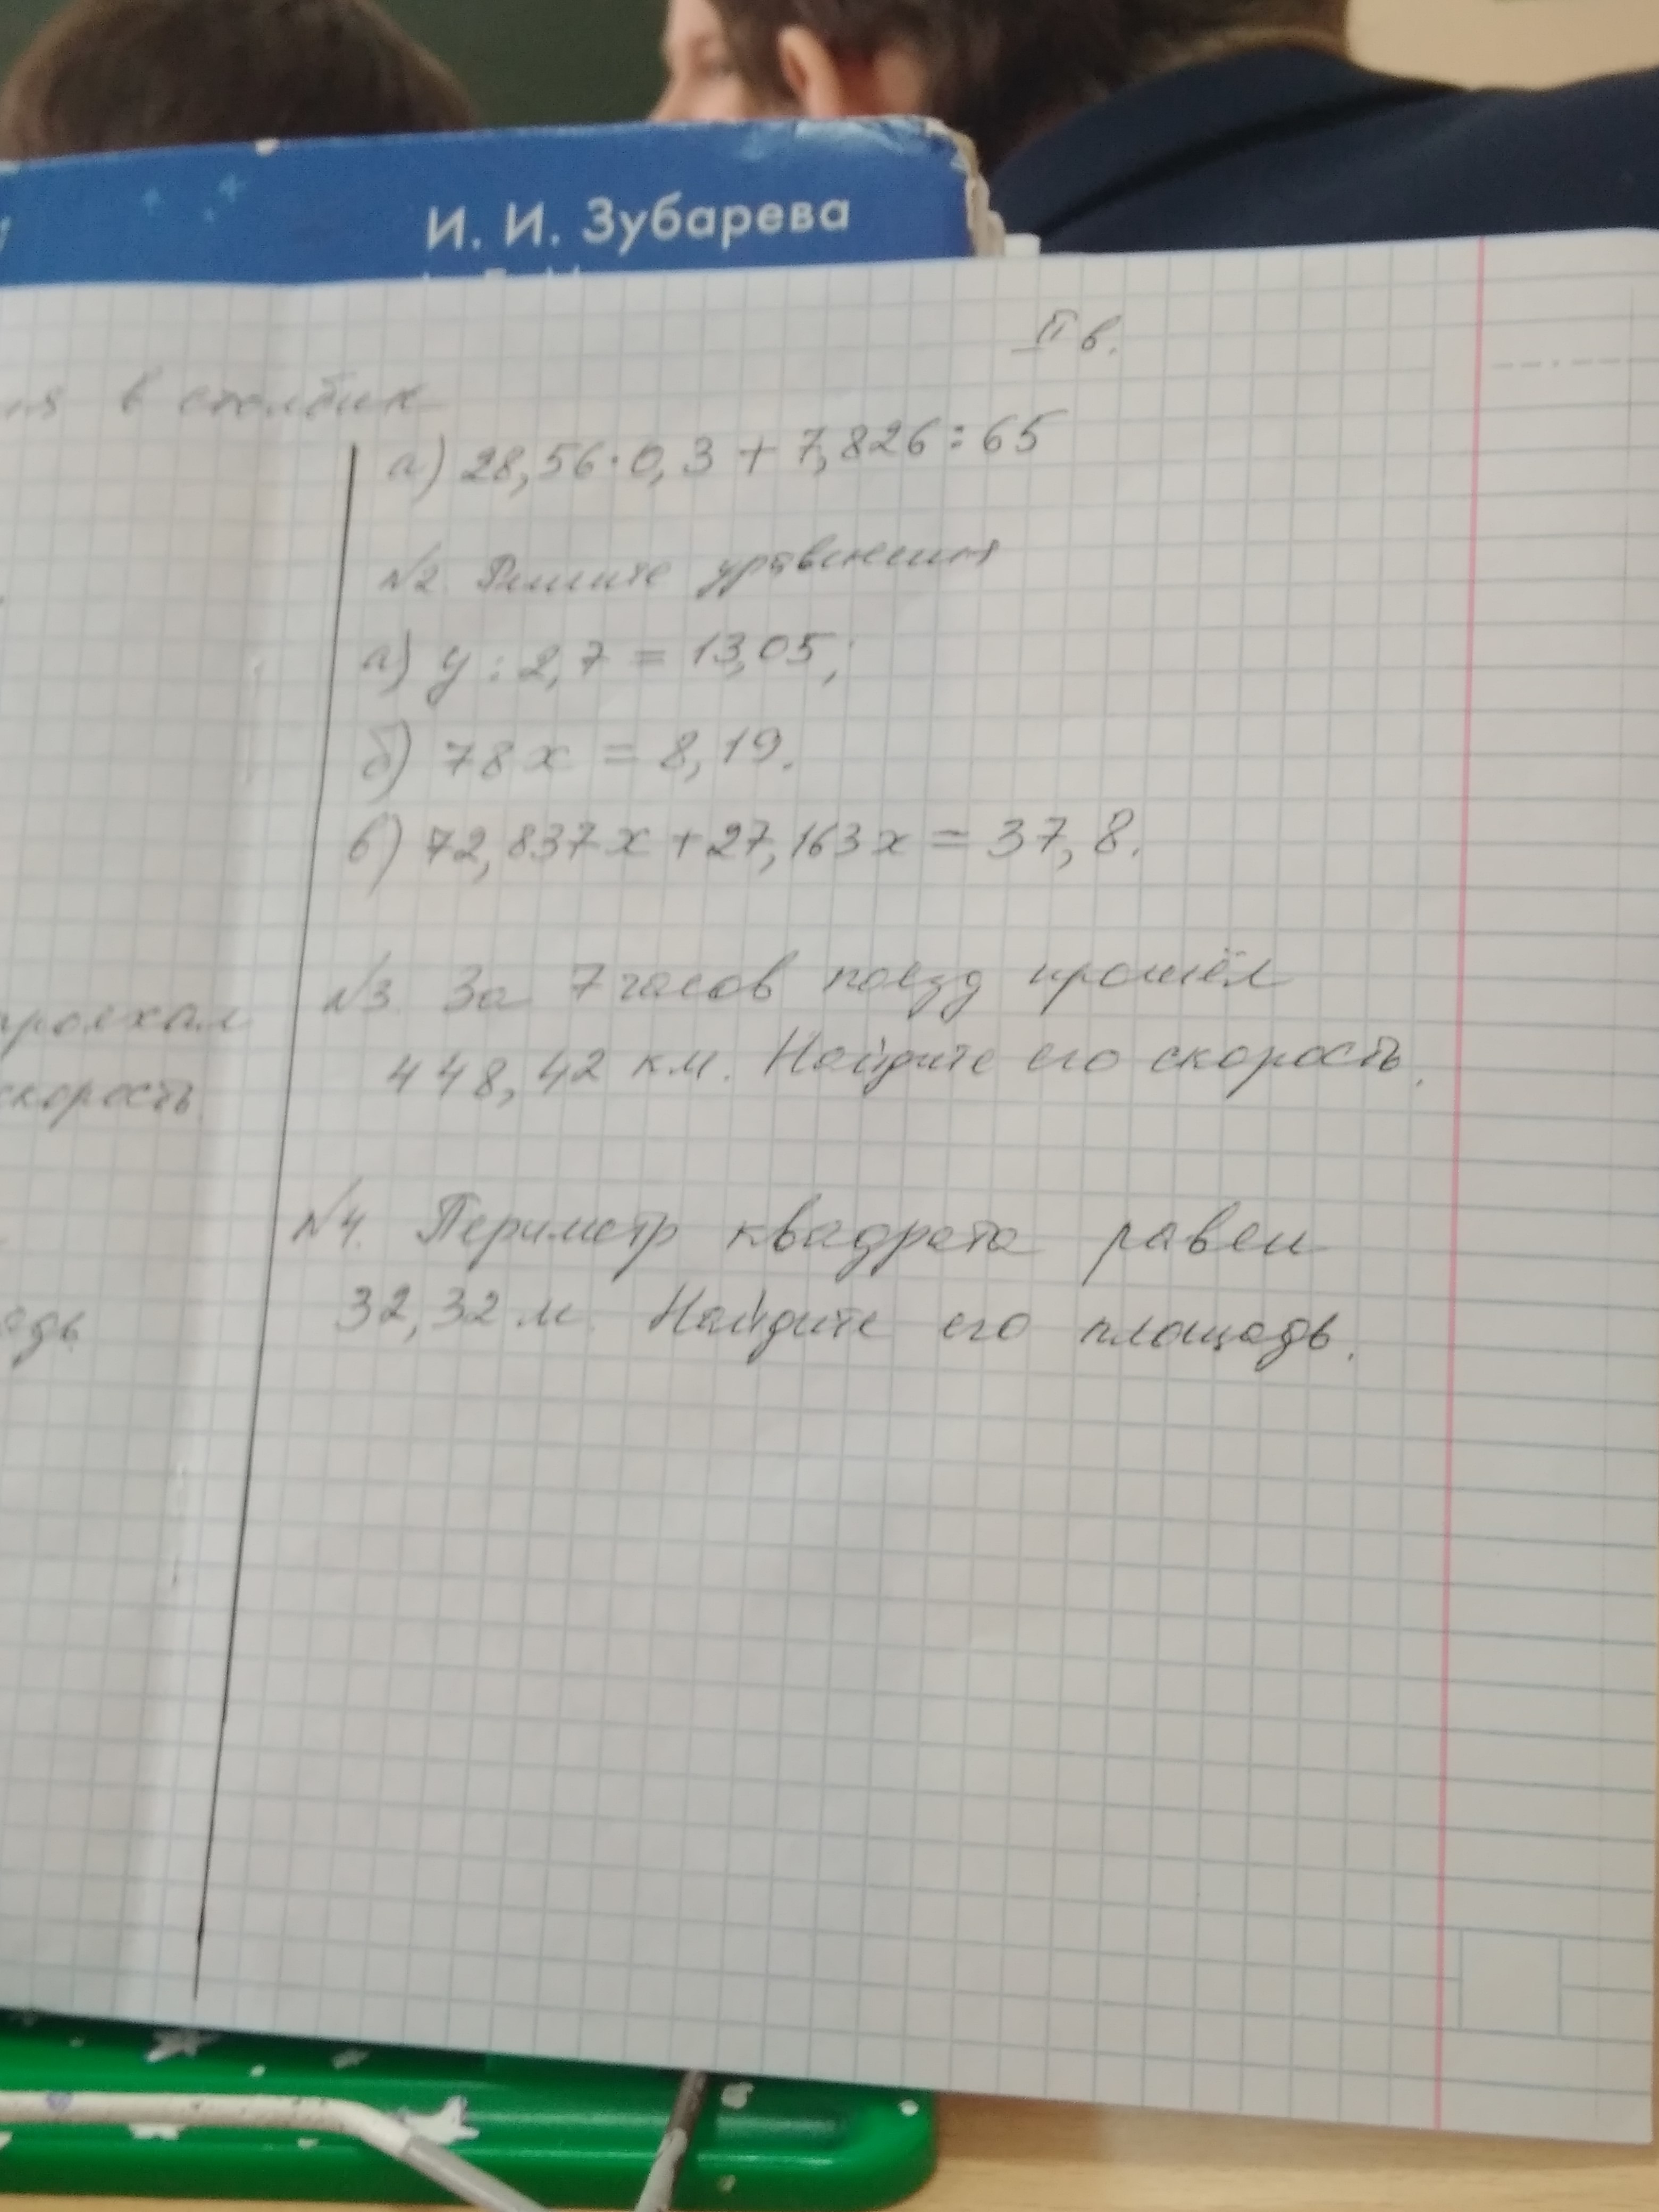 И. И. Зубарева
II в.
в столбик
а) 28,56·0,3 + 7,826 : 65
№2. Решите уравнения
а) у : 2,7 = 13,05;
б) 78х = 8,19.
в) 72,837х + 27,163х = 37,8.
проехал
№3. За 7 часов поезд прошёл
скорость.
448,42 км. Найдите его скорость.
№4. Периметр квадрата равен
32,32 м. Найдите его площадь.